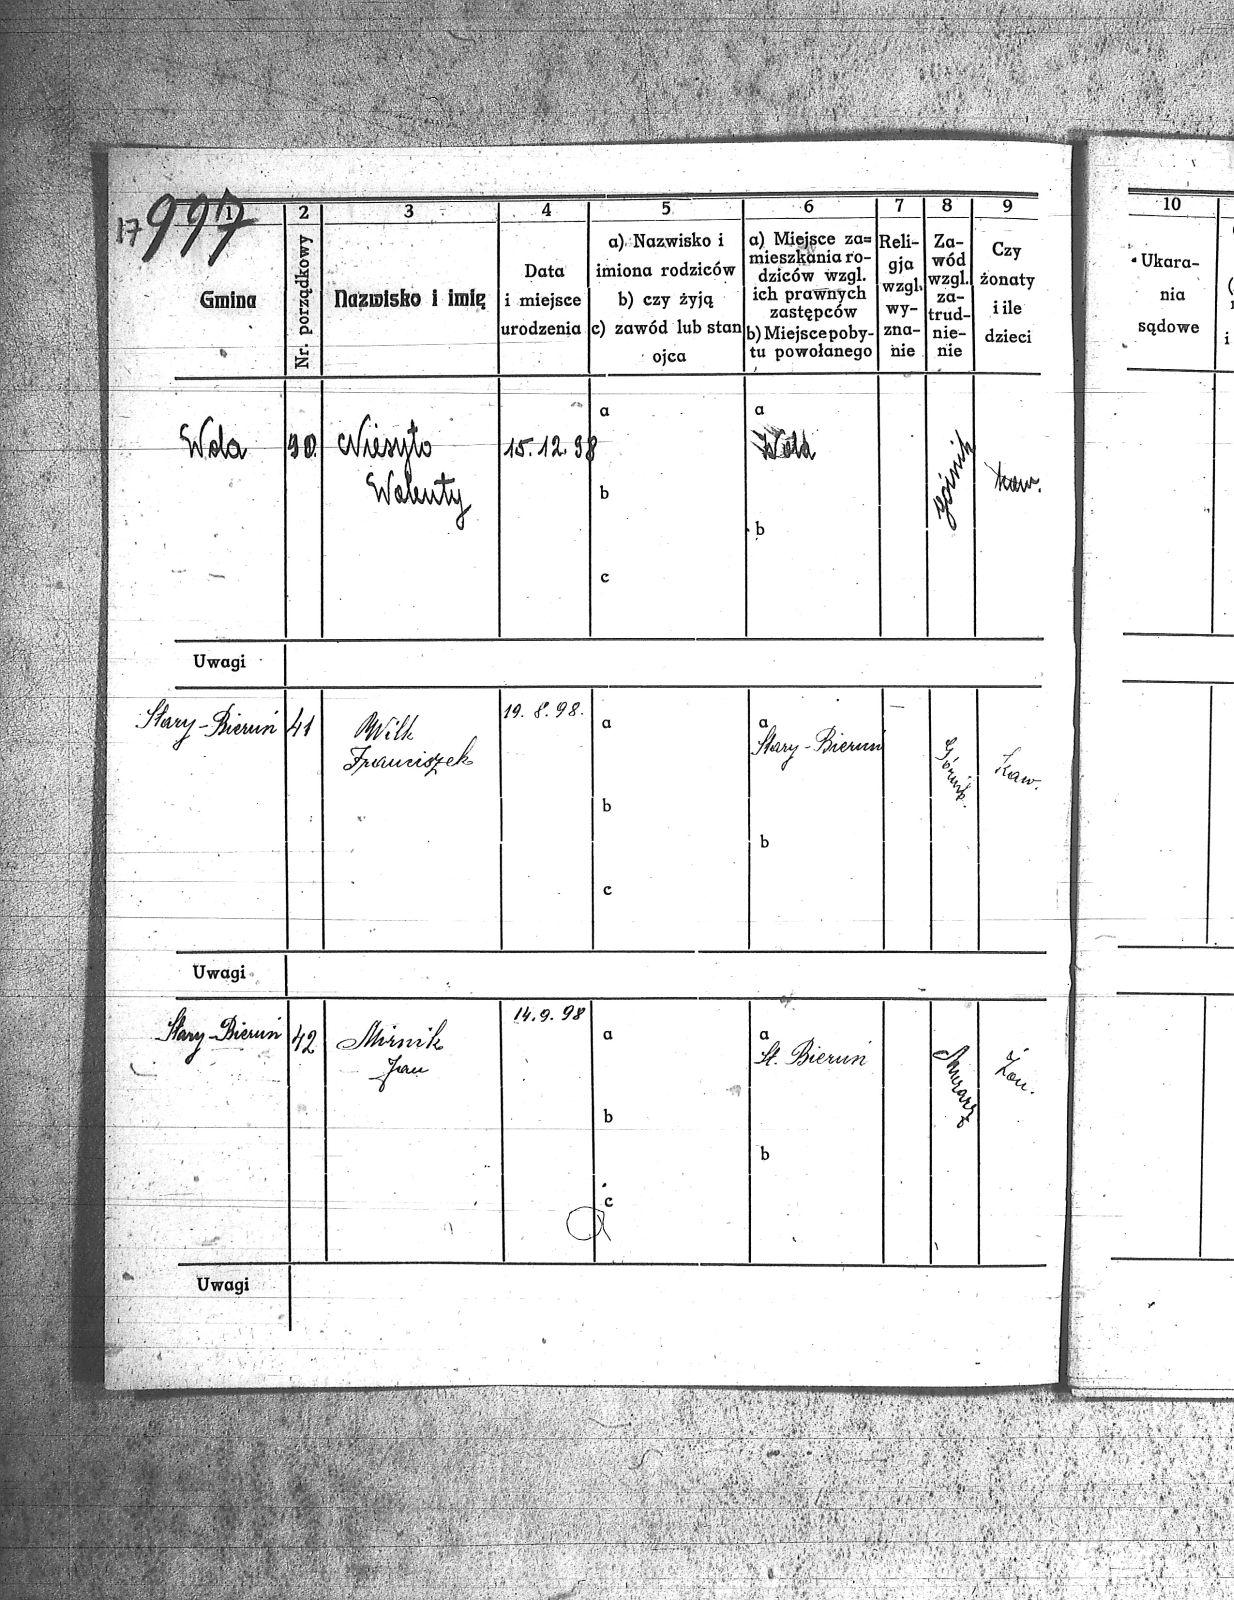 17 997
1 2 3 4 5 6 7 8 9
Gmina
Nr. porządkowy
Nazwisko i imię
Data
i miejsce
urodzenia
a) Nazwisko i
imiona rodziców
b) czy żyją
c) zawód lub stan
ojca
a) Miejsce za=
mieszkania ro-
dziców wzgl.
ich prawnych
zastępców
b) Miejsce poby-
tu powołanego
Reli-
gja
wzgl.
wy-
zna-
nie
Za-
wód
wzgl.
za-
trud-
nie-
nie
Czy
żonaty
i ile
dzieci
10
Ukara-
nia
sądowe
Wola
Niesyto
Walenty
15.12.98
a
b
c
a
Wola
b
górnik
kaw.
Uwagi
Stary-Bieruń
41
Wilk
Franciszek
19.8.98.
a
b
c
a
Stary-Bieruń
b
Górnik.
Kaw.
Uwagi
Stary-Bieruń
42
Mirnik
Jan
14.9.98
a
b
c
a
St. Bieruń
b
Murarz
Żon.
Uwagi